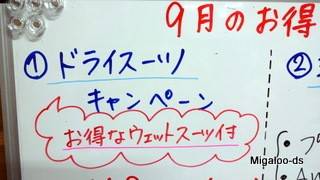 9月のお得
① ドライスーツ
キャンペーン
お得なウェットスーツ付
②
Migaloo-ds